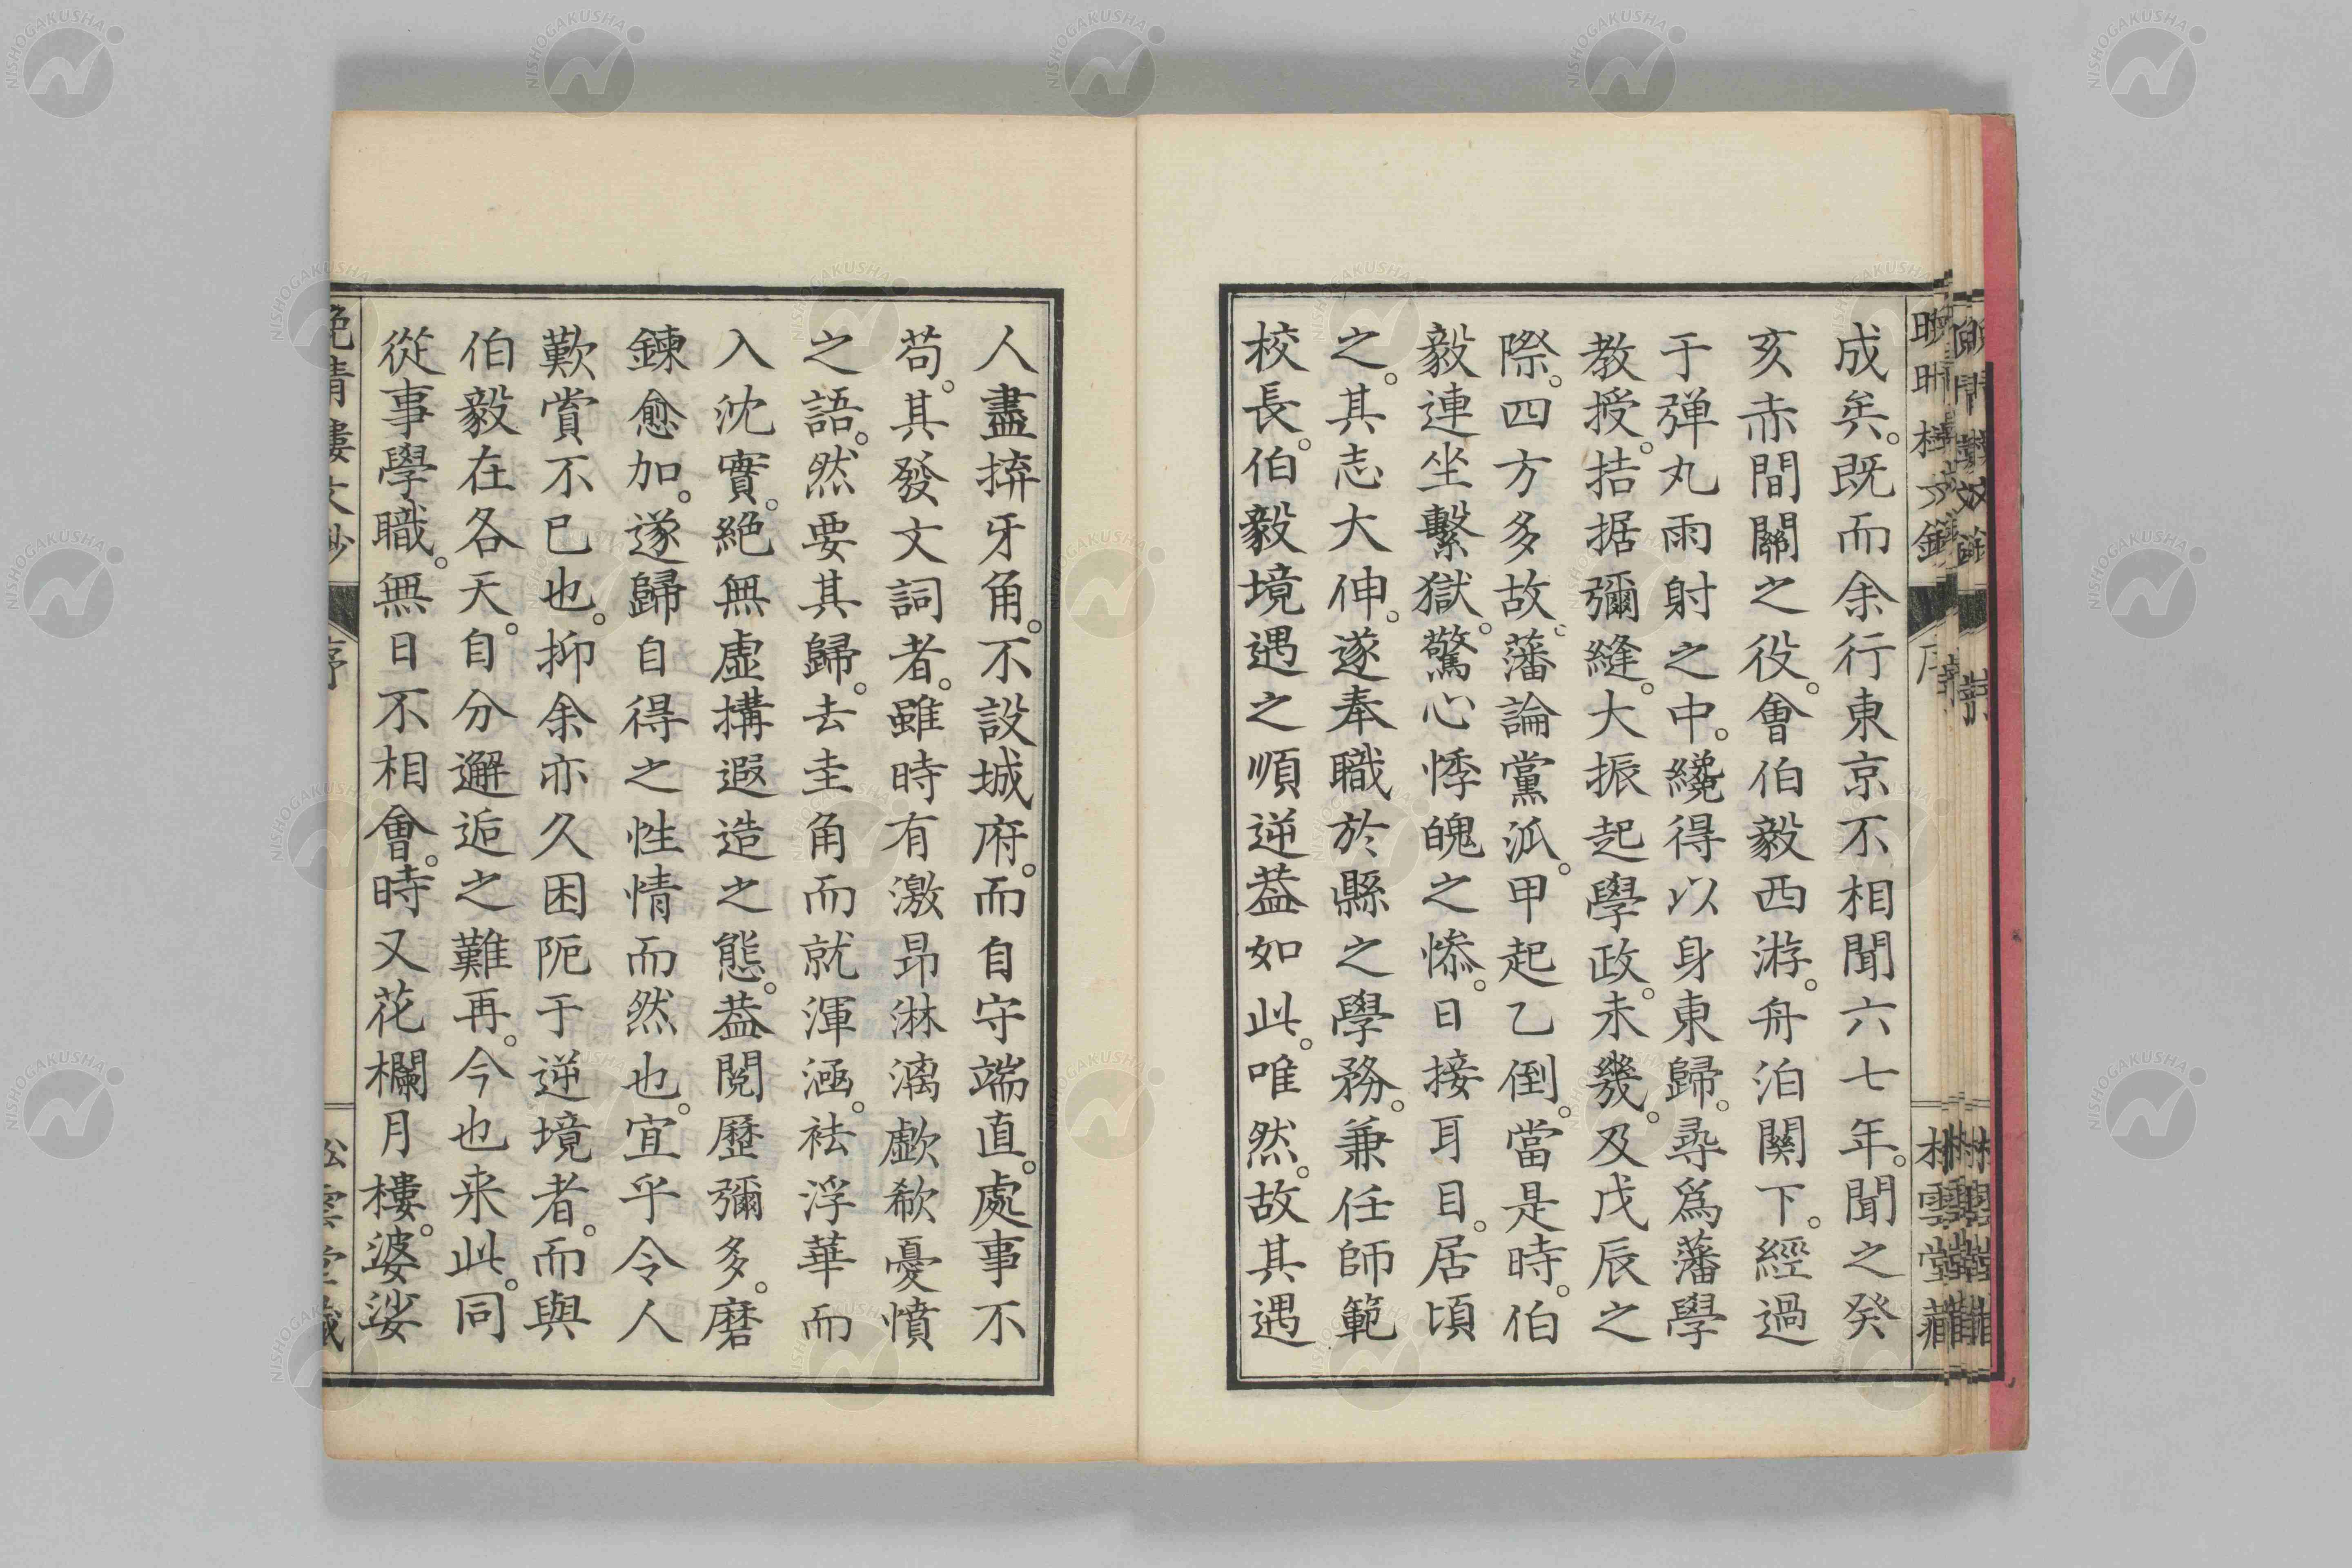 成矣。既而余行東京不相聞六七年。聞之癸
亥赤間關之役。會伯毅西游。舟泊関下。經過
于弾丸雨射之中。纔得以身東歸。尋爲藩學
教授。拮据彌縫。大振起學政。未幾。及戊辰之
際。四方多故。藩論黨泒。甲起乙倒。當是時。伯
毅連坐繫獄。驚心悸魄之慘。日接耳目。居頃
之。其志大伸。遂奉職於縣之學務。兼任師範
校長。伯毅境遇之順逆葢如此。唯然。故其遇
人盡捹牙角。不設城府。而自守端直。處事不
苟。其發文詞者。雖時有激昻淋漓歔欷憂憤
之語。然要其歸。去圭角而就渾涵。袪浮華而
入沈實。絶無虛搆遐造之態。葢閲歷彌多。磨
鍊愈加。遂歸自得之性情而然也。宜乎令人
歎賞不已也。抑余亦久困阨于逆境者。而與
伯毅在各天。自分邂逅之難再。今也来此。同
從事學職。無日不相會。時又花欄月樓。婆娑
晩晴樓文鈔
序
松雲堂藏
NISHOGAKUSHA